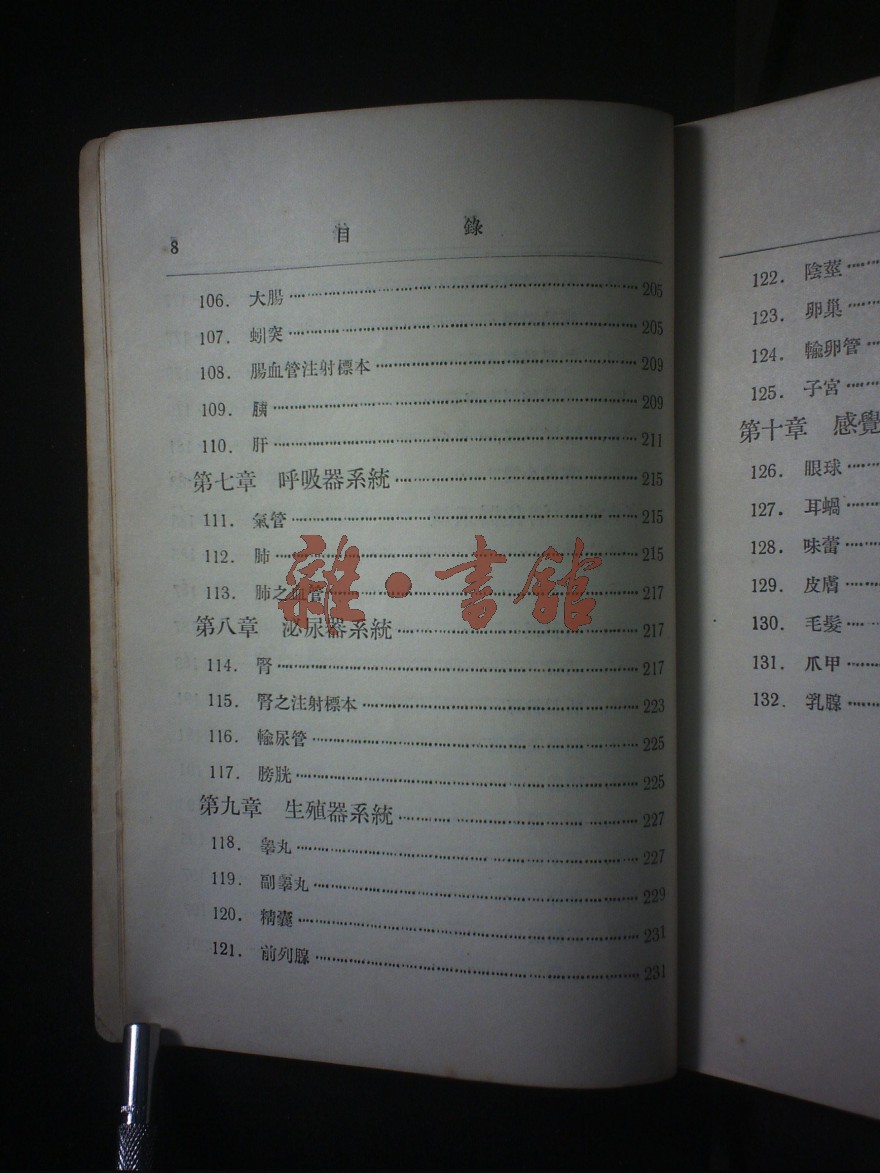 8 目 錄
106. 大腸 205
107. 蚓突 205
108. 腸血管注射標本 209
109. 胰 209
110. 肝 211
第七章 呼吸器系統 215
111. 氣管 215
112. 肺 215
113. 肺之血管 217
雜·書館
第八章 泌尿器系統 217
114. 腎 217
115. 腎之注射標本 223
116. 輸尿管 225
117. 膀胱 225
第九章 生殖器系統 227
118. 睾丸 227
119. 副睾丸 229
120. 精囊 231
121. 前列腺 231
122. 陰莖
123. 卵巢
124. 輸卵管
125. 子宮
第十章 感覺
126. 眼球
127. 耳蝸
128. 味蕾
129. 皮膚
130. 毛髮
131. 爪甲
132. 乳腺